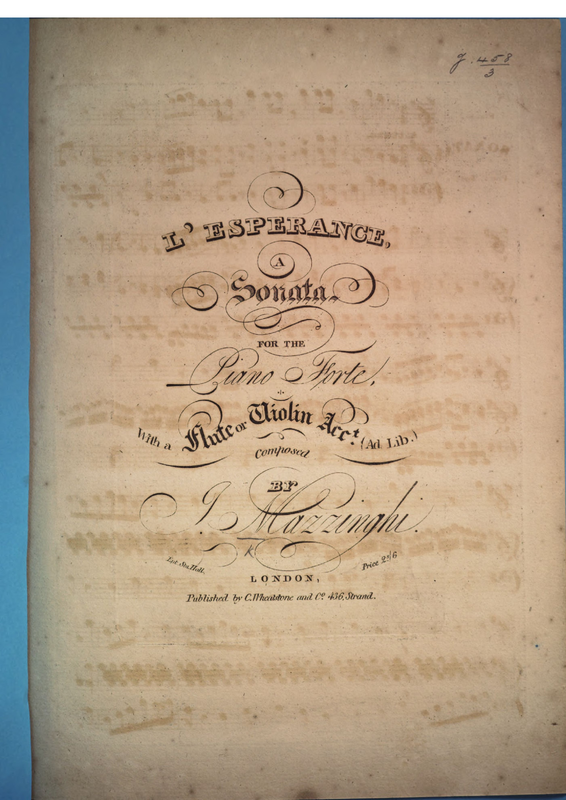 g. 458
3
L' ESPERANCE,
A
Sonata,
FOR THE
Piano Forte,
With a Flute or Violin Acc.t (Ad Lib.)
Composed
BY
J. Mazzinghi.
Ent. Sta. Hall.
Price 2s/6
LONDON,
Published by C. Wheatstone and Co. 436, Strand.